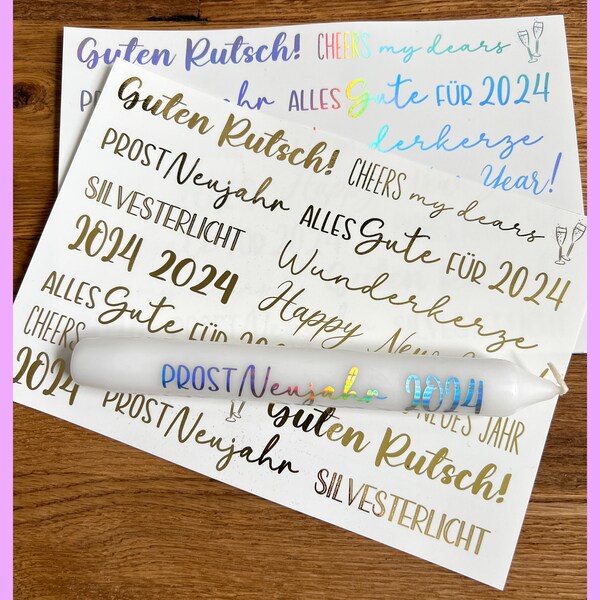 Guten Rutsch! CHEERS my dears
ALLES Gute FÜR 2024
derkerze
Year!
Guten Rutsch! CHEERS my dears
PROST Neujahr ALLES Gute FÜR 2024
SILVESTERLICHT Wunderkerze
2024 2024 Happy New
ALLES Gute FÜR
CHEERS
PROST Neujahr 2024
2024 PROST Neujahr Guten Rutsch!
NEUES JAHR
SILVESTERLICHT